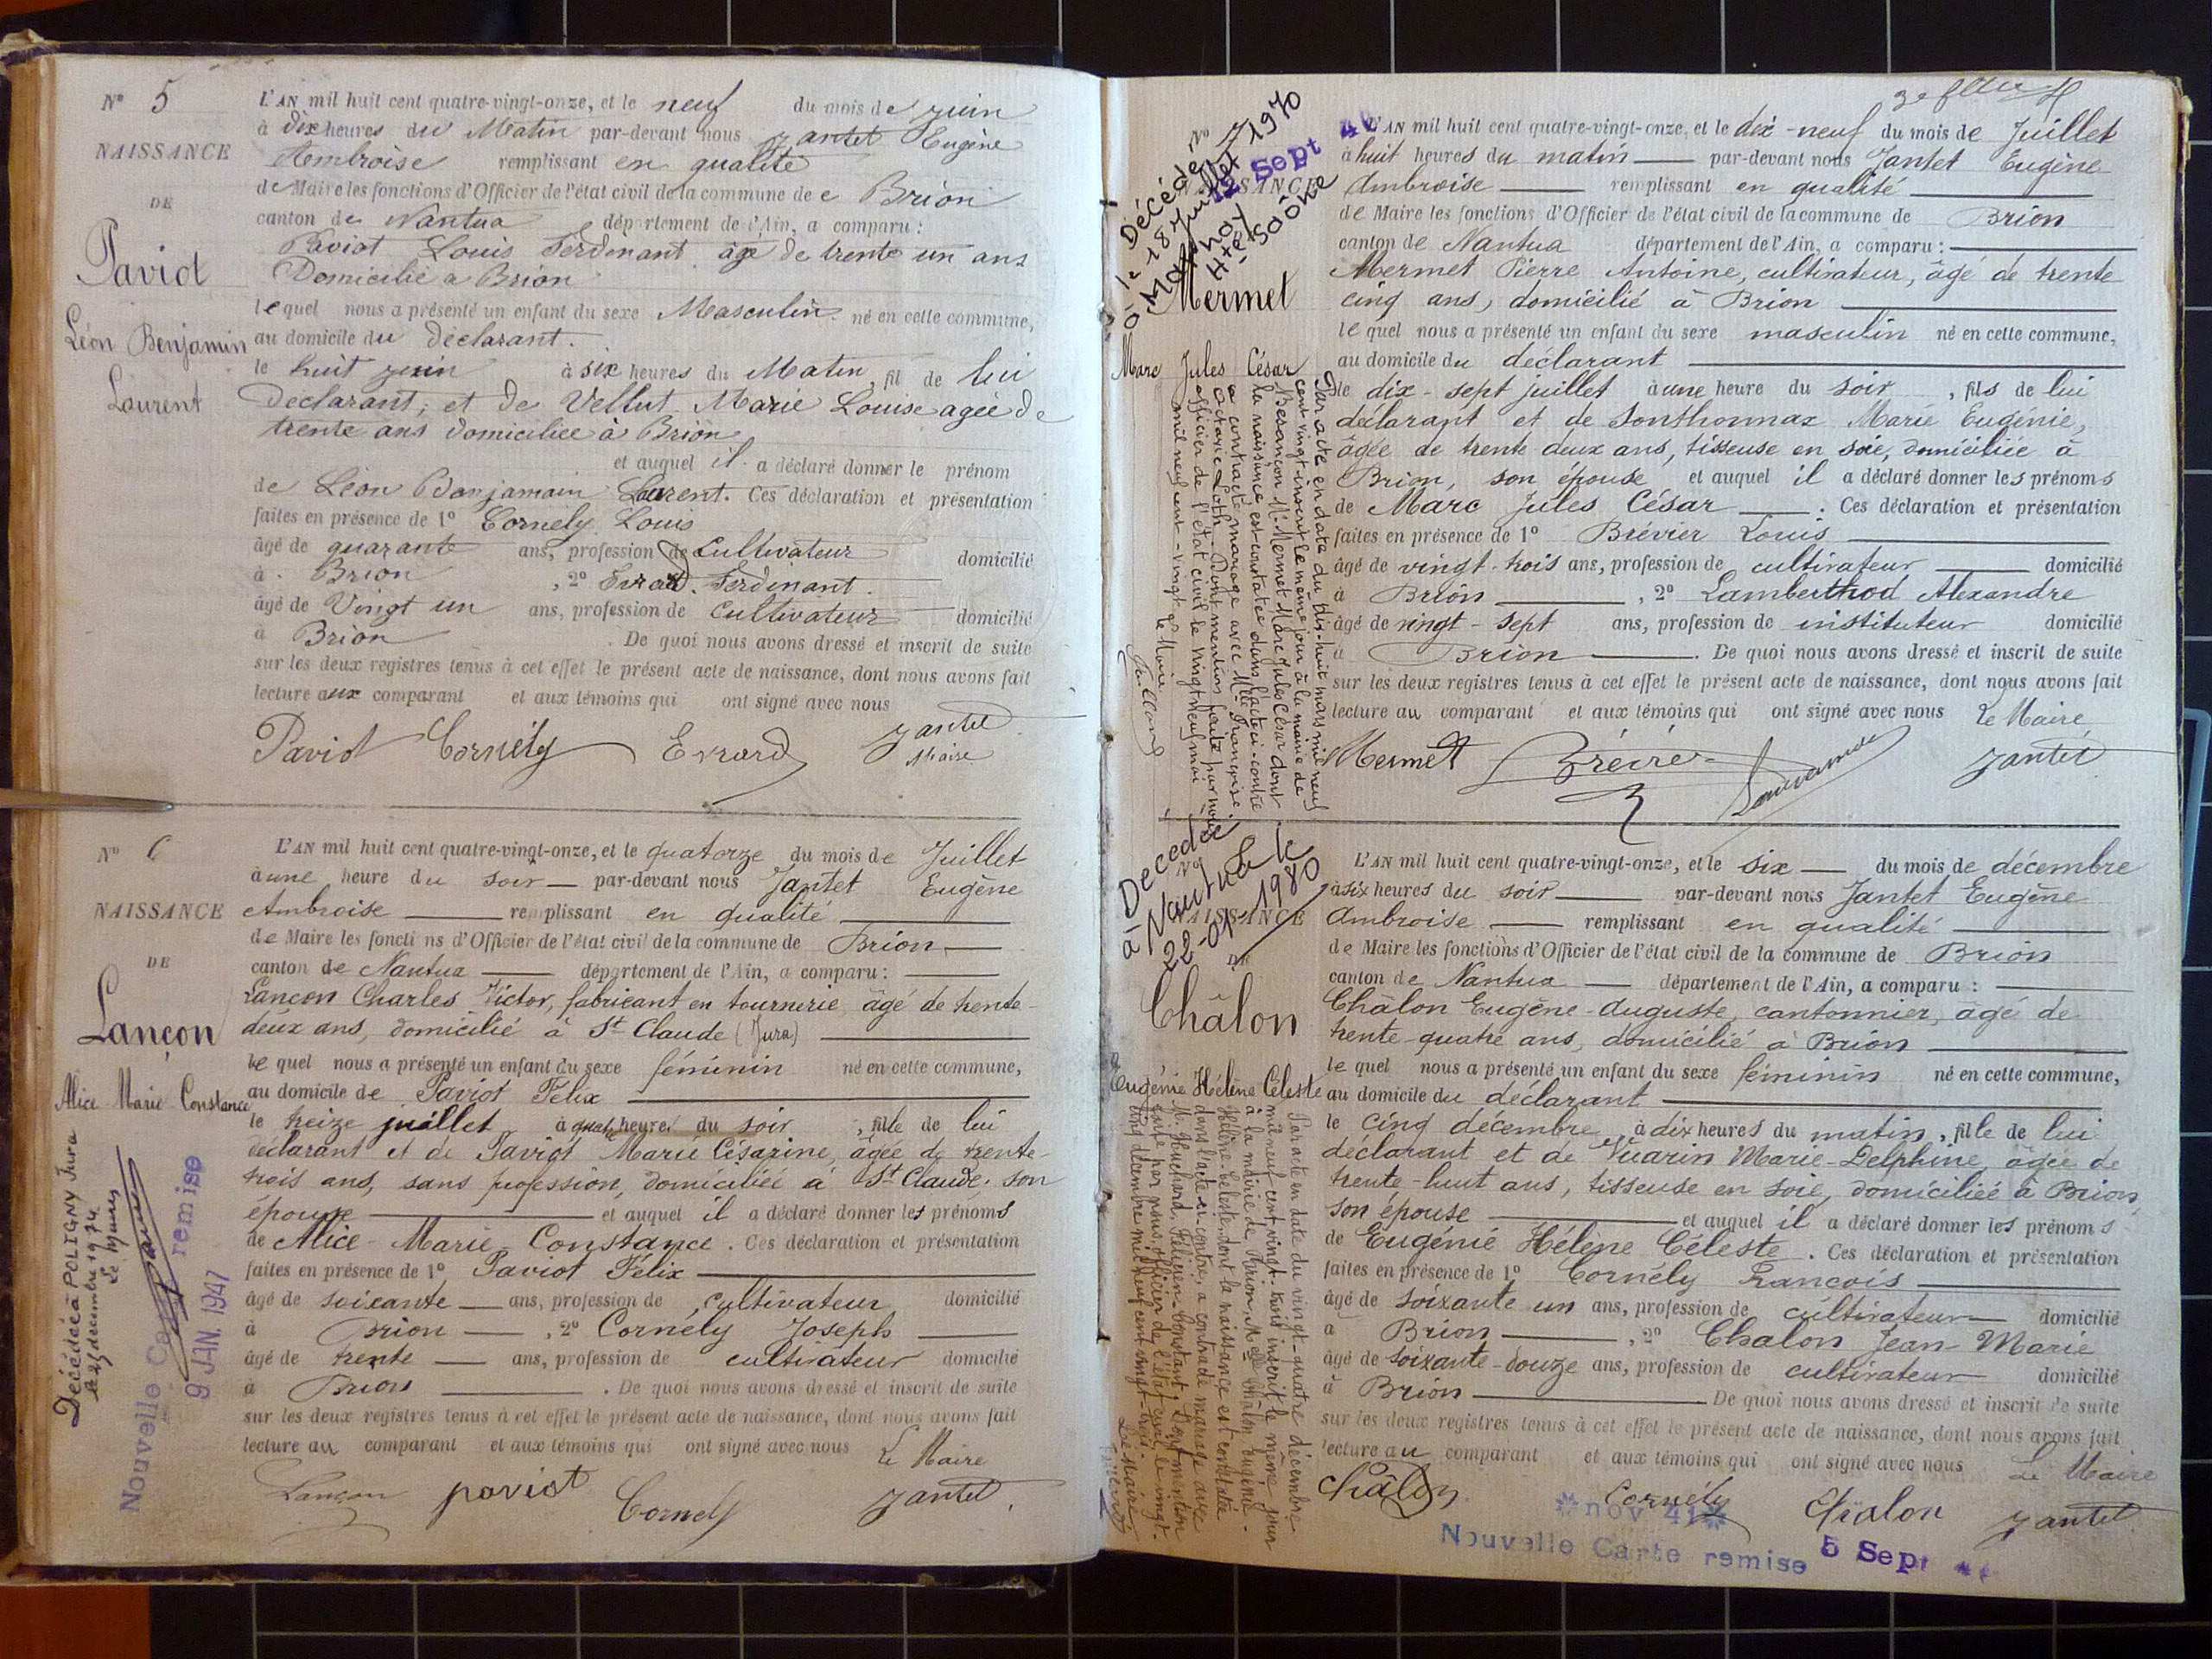 N° 5
NAISSANCE
DE
Paviot
Léon Benjamin
Laurent
L'AN mil huit cent quatre-vingt-onze, et le neuf du mois de juin
à dix heures du Matin par-devant nous Jantet Eugène
Ambroise remplissant en qualité
de Maire les fonctions d'Officier de l'état civil de la commune de e Brion
canton de Nantua département de l'Ain, a comparu :
Paviot Louis Ferdinant âgé de trente un ans
Domicilié a Brion
lequel nous a présenté un enfant du sexe Masculin né en cette commune,
au domicile du déclarant.
le huit juin à six heures du Matin, fil de lui
Déclarant, et de Vellut Marie Louise agée de
trente ans domiciliée à Brion
et auquel il a déclaré donner le prénom
de Léon Benjamain Laurent. Ces déclaration et présentation
faites en présence de 1° Cornely Louis
âgé de quarante ans, profession de Cultivateur domicilié
à Brion, 2° Evrard Ferdinant.
âgé de Vingt un ans, profession de Cultivateur domicilié
à Brion. De quoi nous avons dressé et inscrit de suite
sur les deux registres tenus à cet effet le présent acte de naissance, dont nous avons fait
lecture aux comparant et aux témoins qui ont signé avec nous
Paviot Cornély Evrard Jantet
Maire
N° 6
NAISSANCE
DE
Lançon
Alice Marie Constance
Décédée à POLIGNY Jura
le 25 décembre 1974
Nouvelle Carte remise
9 JAN. 1947
L'AN mil huit cent quatre-vingt-onze, et le quatorze du mois de Juillet
à une heure du soir par-devant nous Jantet Eugène
Ambroise remplissant en qualité
de Maire les fonctions d'Officier de l'état civil de la commune de Brion
canton de Nantua département de l'Ain, a comparu :
Lançon Charles Victor, fabricant en tournerie, âgé de trente-
deux ans, domicilié à St Claude (Jura)
le quel nous a présenté un enfant du sexe féminin né en cette commune,
au domicile de Paviot Félix
le treize juillet à quatre heures du soir, fille de lui
déclarant et de Paviot Marie Césarine, âgée de trente-
trois ans, sans profession, domiciliée à St Claude, son
épouse et auquel il a déclaré donner les prénoms
de Alice Marie Constance. Ces déclaration et présentation
faites en présence de 1° Paviot Félix
âgé de soixante ans, profession de cultivateur domicilié
à Brion, 2° Cornély Joseph
âgé de trente ans, profession de cultivateur domicilié
à Brion. De quoi nous avons dressé et inscrit de suite
sur les deux registres tenus à cet effet le présent acte de naissance, dont nous avons fait
lecture au comparant et aux témoins qui ont signé avec nous Le Maire
Lançon paviot Cornely Jantet
N° 7
NAISSANCE
Décédé
le 18 juillet 1970
Hte-Saône
Sept
Mermet
Marc Jules César
Par acte en date du dix-huit mars mil neuf
cent vingt inscrit le même jour à la mairie de
Besançon Mr Mermet Marc Jules César dont
la naissance est constatée dans l'acte ci-contre
a contracté mariage avec Mlle Françoise
Octavie Loth. Dont mention faite par nous
officier de l'état civil le vingt neuf mai
mil neuf cent vingt
le Maire
L'AN mil huit cent quatre-vingt-onze, et le dix-neuf du mois de Juillet
à huit heures du matin par-devant nous Jantet Eugène
Ambroise remplissant en qualité
de Maire les fonctions d'Officier de l'état civil de la commune de Brion
canton de Nantua département de l'Ain, a comparu :
Mermet Pierre Antoine, cultivateur, âgé de trente
cinq ans, domicilié à Brion
le quel nous a présenté un enfant du sexe masculin né en cette commune,
au domicile du déclarant
le dix-sept juillet à une heure du soir, fils de lui
déclarant et de Sonthonnax Marie Eugénie,
âgée de trente deux ans, tisseuse en soie, domiciliée à
Brion, son épouse et auquel il a déclaré donner les prénoms
de Marc Jules César. Ces déclaration et présentation
faites en présence de 1° Brévier Louis
âgé de vingt-trois ans, profession de cultivateur domicilié
à Brion, 2° Lamberthod Alexandre
âgé de vingt-sept ans, profession de instituteur domicilié
à Brion. De quoi nous avons dressé et inscrit de suite
sur les deux registres tenus à cet effet le présent acte de naissance, dont nous avons fait
lecture au comparant et aux témoins qui ont signé avec nous Le Maire
Mermet Brévier Jantet
Décedée
à Nantua le
22-07-1980
NAISSANCE
DE
Châlon
Eugénie Hélène Céleste
Par acte en date du vingt-quatre décembre
mil neuf cent vingt-trois inscrit le même jour
à la mairie de Brion, Melle Châlon Eugénie-
Hélène-Céleste, dont la naissance est constatée
dans l'acte ci-contre, a contracté mariage avec
faite par nous, officier de l'état civil, le vingt-
cinq décembre mil neuf cent vingt-trois
Le Maire
L'AN mil huit cent quatre-vingt-onze, et le six du mois de décembre
à six heures du soir par-devant nous Jantet Eugène
Ambroise remplissant en qualité
de Maire les fonctions d'Officier de l'état civil de la commune de Brion
canton de Nantua département de l'Ain, a comparu :
Châlon Eugène-Auguste, cantonnier, âgé de
trente-quatre ans, domicilié à Brion
le quel nous a présenté un enfant du sexe féminin né en cette commune,
au domicile du déclarant
le cinq décembre, à dix heures du matin, fille de lui
déclarant et de Vuarin Marie-Delphine, âgée de
trente-huit ans, tisseuse en soie, domiciliée à Brion
son épouse et auquel il a déclaré donner les prénoms
de Eugénie Hélène Céleste. Ces déclaration et présentation
faites en présence de 1° Cornély François
âgé de soixante un ans, profession de cultivateur domicilié
à Brion, 2° Chalon Jean-Marie
âgé de soixante-douze ans, profession de cultivateur domicilié
à Brion De quoi nous avons dressé et inscrit de suite
sur les deux registres tenus à cet effet le présent acte de naissance, dont nous avons fait
lecture au comparant et aux témoins qui ont signé avec nous Le Maire
Châlon Cornély Chalon Jantet
nov 41
Nouvelle Carte remise 5 Sept